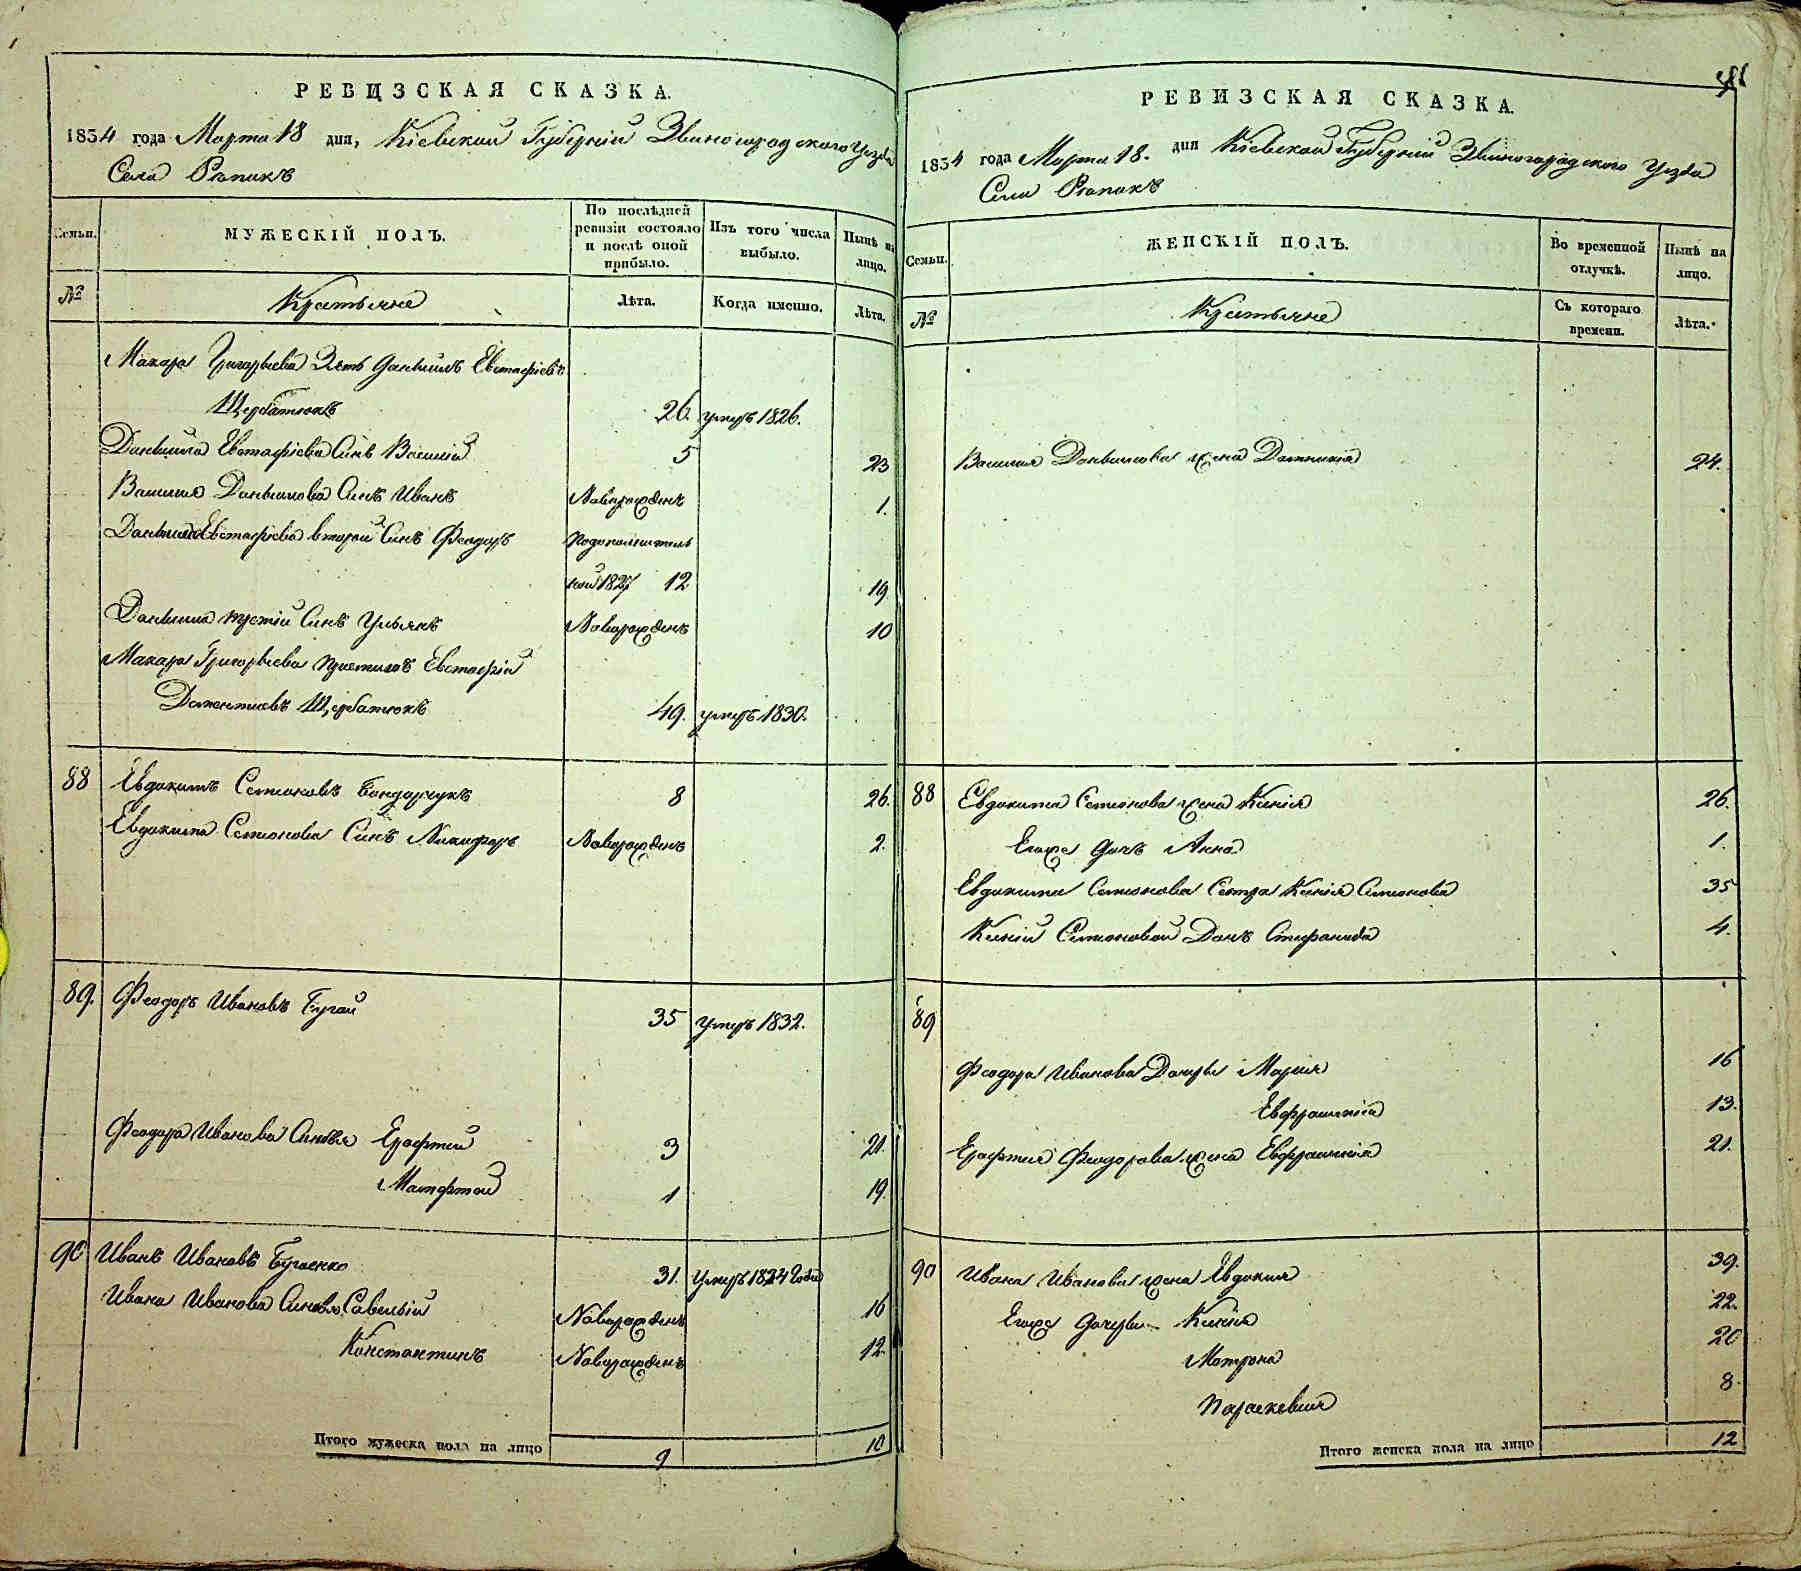 РЕВИЗСКАЯ СКАЗКА.
1834 года Марта 18 дня, Кіевской Губерніи Звиногородского Уезда
Села Рэпикъ
Семьи.
МУЖЕСКІЙ ПОЛЪ.
По послѣдней ревизіи состояло и послѣ оной прибыло.
Изъ того числа выбыло.
Нынѣ на лицо.
№
Крестьяне
Лѣта.
Когда именно.
Лѣта.
Макара Григорьева Зять Даніилъ Евстафіевъ
Щербатюкъ 26. умеръ 1826.
Даніила Евстафіева Синъ Василій 5 23
Василія Даніилова Синъ Иванъ Новорожденъ 1.
Даніила Евстафіева вторый Синъ Феодоръ
1827 12 19
Даніила третій Синъ Ульянъ Новорожденъ 10
Макара Григорьева Евстафій
Щербатюкъ 49. умеръ 1830.
88 Евдокимъ Семіоновъ Бондарчукъ 8 26.
Евдокима Семіонова Синъ Никифоръ Новорожденъ 2.
89. Феодоръ Ивановъ Бугай 35 умеръ 1832.
Феодора Иванова Синовья Ерофтей 3 21.
Матфтей 1 19.
90 Иванъ Ивановъ Бугаенко 31. Умеръ 1824 Года
Ивана Иванова Синовья Савелій Новорожденъ 16
Константинъ Новорожденъ 12.
Итого мужеска пола на лицо 9 10
РЕВИЗСКАЯ СКАЗКА.
1834 года Марта 18. дня Кіевской Губерніи Звиногородского Уезда
Села Рэпикъ
Семьи.
ЖЕНСКІЙ ПОЛЪ.
Во временной отлучкѣ.
Нынѣ на лицо.
№
Крестьяне
Съ котораго времени.
Лѣта.
Василія Даніилова жена Домникія 24.
88 Евдокима Семіонова жена Ксенія 26.
Егоже дочь Анна 1.
Евдокима Семіонова Сестра Ксенія Семіонова 35
Ксеніи Семіоновой Дочь Стефанида 4.
89
Феодора Иванова Дочеры Марія 16
Евфросинія 13.
Ерофтея Феодорова жена Евфросинія 21.
90 Ивана Иванова жена Евдокия 39.
Егоже дочеры Ксенія 22.
Матрона 20
Параскевия 8.
Итого женска пола на лицо 12